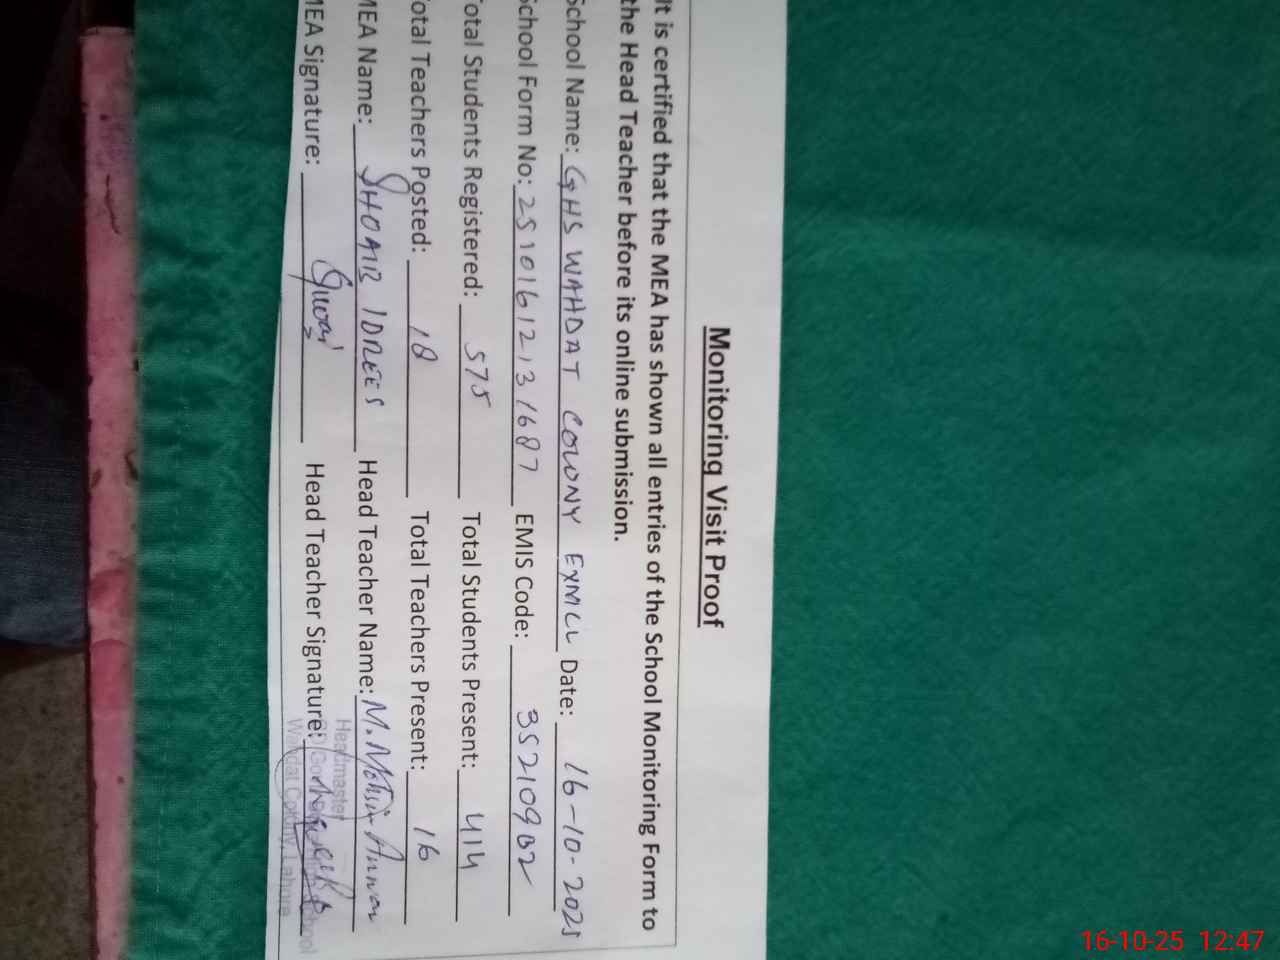 Monitoring Visit Proof
It is certified that the MEA has shown all entries of the School Monitoring Form to
the Head Teacher before its online submission.
School Name: GHS WAHDAT COLONY EXMCL Date: 16-10-2025
School Form No: 25101612131687 EMIS Code: 35210982
Total Students Registered: 575 Total Students Present: 414
Total Teachers Posted: 18 Total Teachers Present: 16
MEA Name: SHOAIB IDREES Head Teacher Name: M. Mohsin Anwar
MEA Signature: Head Teacher Signature:
Headmaster
School
Wahdat Colony, Lahore
16-10-25 12:47